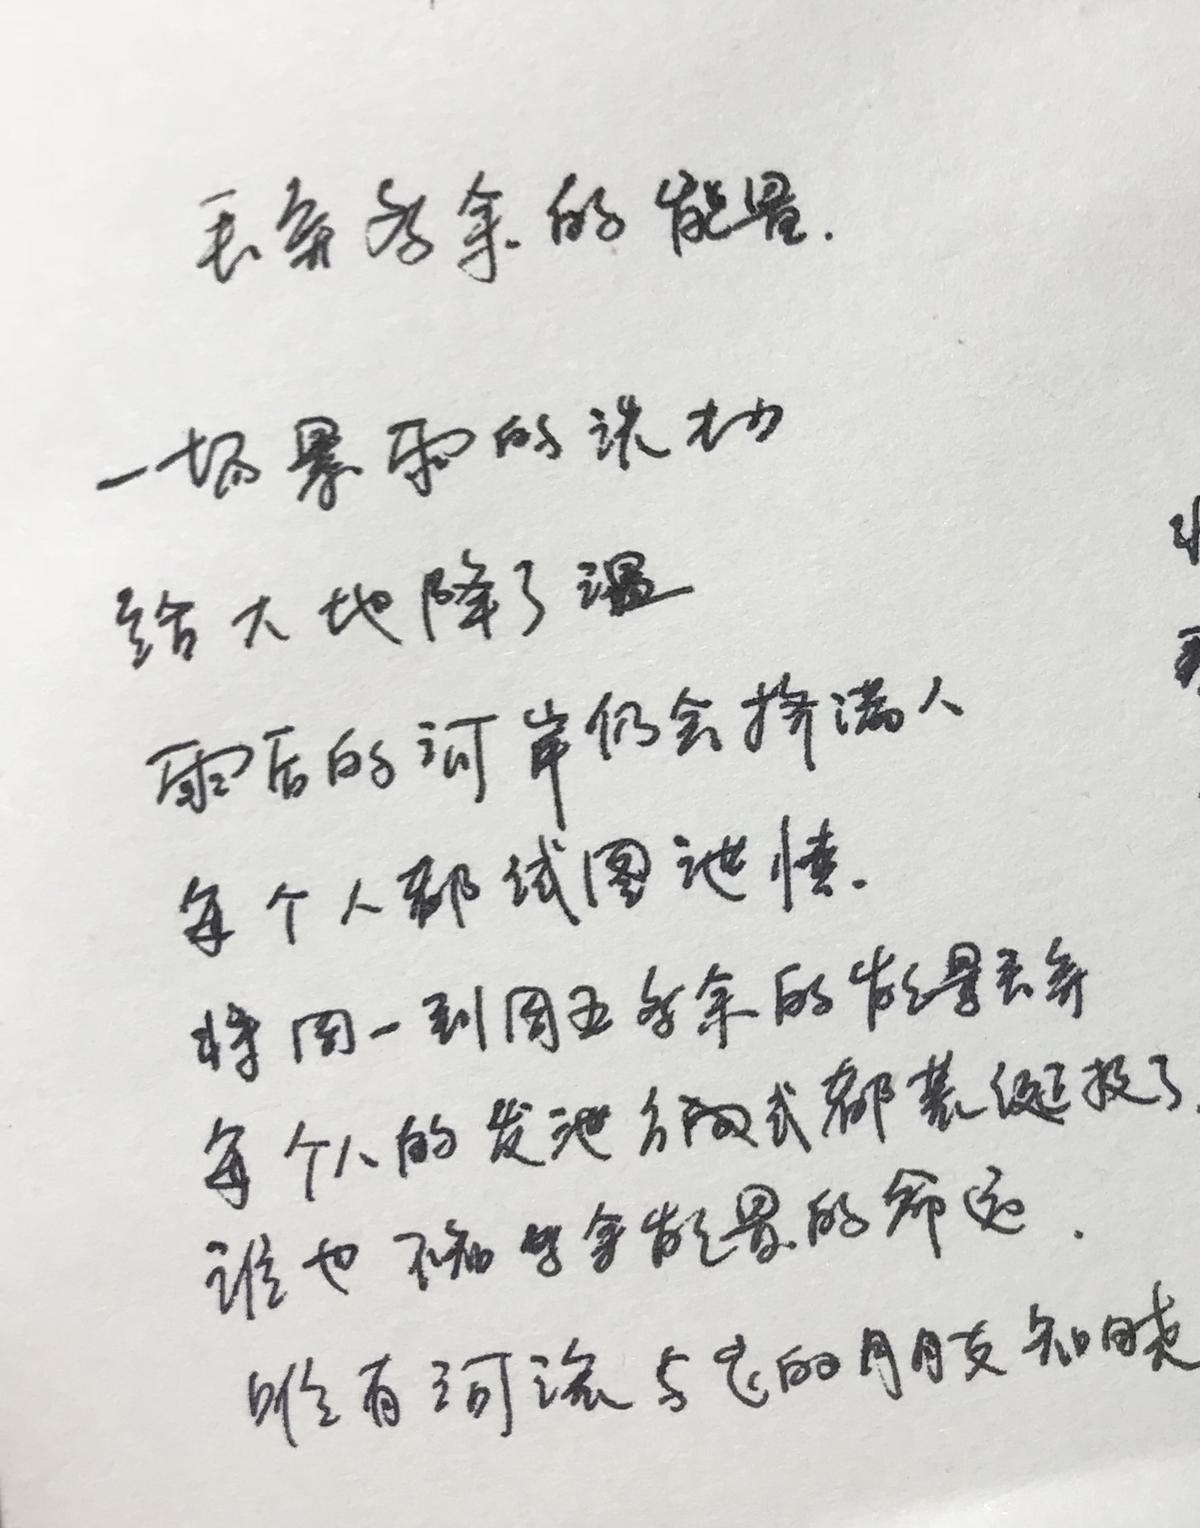 丢弃多余的能量.
一场暴雨的洗劫
给大地降了温
雨后的河岸仍会挤满人
每个人都试图泄愤.
将周一到周五多余的能量丢弃
每个人的发泄方式都荒诞极了.
谁也不知多余能量的命运.
唯有河流与它的朋友知晓